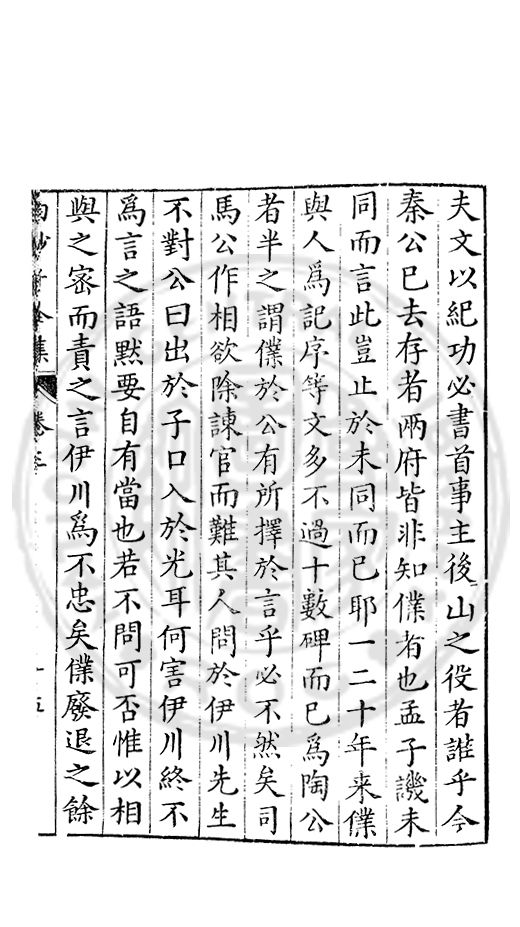 夫文以紀功必書首事主後山之役者誰乎今
秦公已去存者兩府皆非知僕者也孟子譏未
同而言此豈止於未同而已耶一二十年來僕
與人爲記序等文多不過十數碑而已爲陶公
者半之謂僕於公有所擇於言乎必不然矣司
馬公作相欲除諫官而難其人問於伊川先生
不對公曰出於子口入於光耳何害伊川終不
爲言之語默要自有當也若不問可否惟以相
與之密而責之言伊川爲不忠矣僕廢退之餘
集 卷三 十五